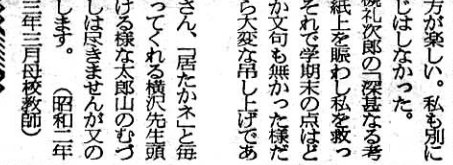 方が楽しい。私も別に
じはしなかった。
槻礼次郎の「深甚なる考
紙上を賑わし私を救っ
それで学期末の点はど
か文句も無かった様だ
ら大変な吊し上げであ
さん、「居たかネ」と毎
ってくれる横沢先生頭
ける様な太郎山のむづ
しは尽きませんが又の
します。　（昭和二年
三年三月母校教師）